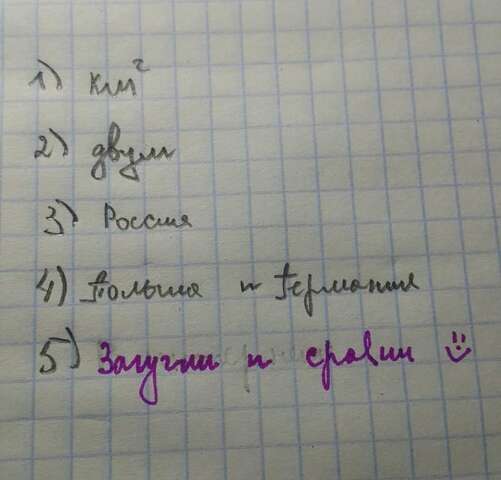 1) км²
2) двум
3) Россия
4) Польша и Германия
5) Загугли и сравни